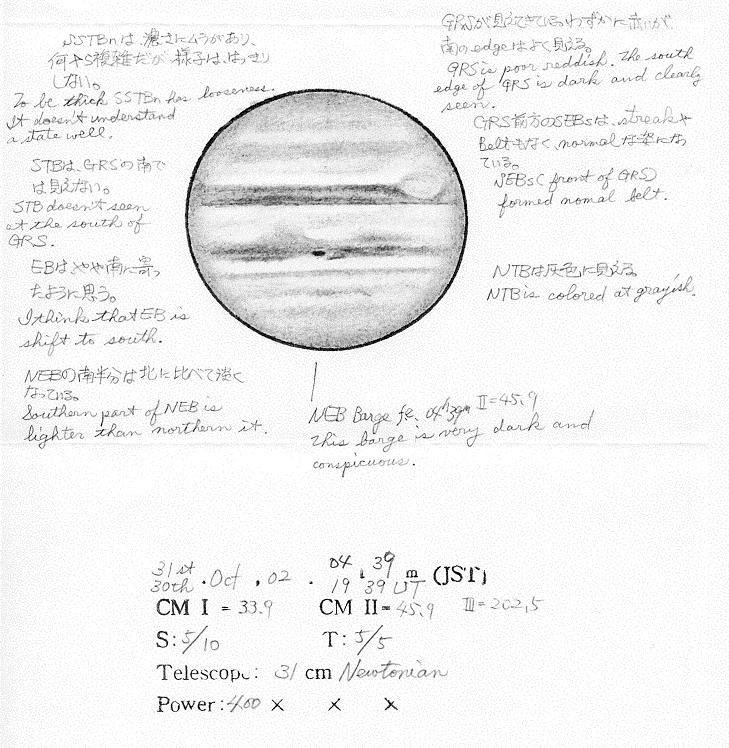 SSTBnは、濃さにムラがあり、
何やら複雑だが様子は、はっきり
しない。
To be thick SSTBn has looseness.
It doesn't understand
a state well.
STBは、GRSの南で
は見えない。
STB doesn't seen
at the south of
GRS.
EBはやや南に寄っ
たように思う。
I think that EB is
shift to south.
NEBの南半分は北に比べて淡く
なっている。
Southern part of NEB is
lighter than northern it.
GRSが見えてきているわずかに赤いが
南のedgeはよく見える。
GRS is poor reddish. The south
edge of GRS is dark and clearly
seen.
GRS前方のSEBsは、streakや
beltもなく、normalな姿になっ
ている。
SEBs (front of GRS)
formed nomal belt.
NTBは灰色に見える
NTB is colored at grayish.
NEB Barge fe. 04h39m II=45.9
This barge is very dark and
conspicuous.
31st 04 39
30th. Oct. 02. 19 39 UT m (JST)
CM I = 33.9 CM II = 45.9 III=202.5
S: 5/10 T: 5/5
Telescope: 31 cm Newtonian
Power: 400 × × ×